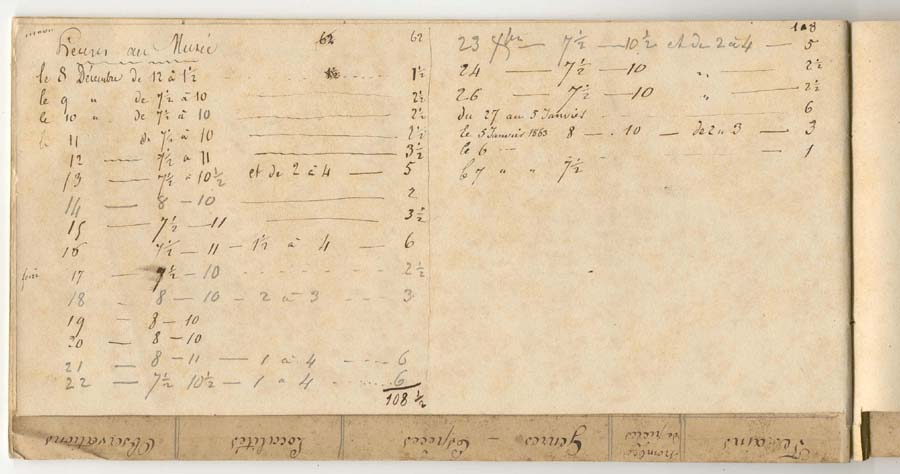 Heures au Musée 62 62
le 8 Décembre de 12 à 1½ 1½
le 9 " de 7½ à 10 2½
le 10 " de 7½ à 10 2½
le 11 de 7½ à 10 2½
12 — 7½ à 11 3½
13 — 7½ à 10½ et de 2 à 4 — 5
14 — 8 - 10 2
15 — 7½ — 11 3½
16 7½ — 11 — 1½ à 4 — 6
17 — 7½ - 10 2½
18 — 8 — 10 - 2 à 3 3
19 — 8 — 10
20 — 8 — 10
21 — 8 — 11 — 1 à 4 6
22 — 7½ 10½ — 1 à 4 6
108 ½
108
23 — 7½ — 10½ et de 2 à 4 — 5
24 — 7½ — 10 " 2½
26 — 7½ — 10 " 2½
du 27 au 3 Janvier 6
le 5 Janvier 1863 8 — 10 — de 2 à 3 — 3
le 6 — 1
le 7 " " 7½
Terrains
nombre de pièces
Genres — Espèces
Localités
Observations